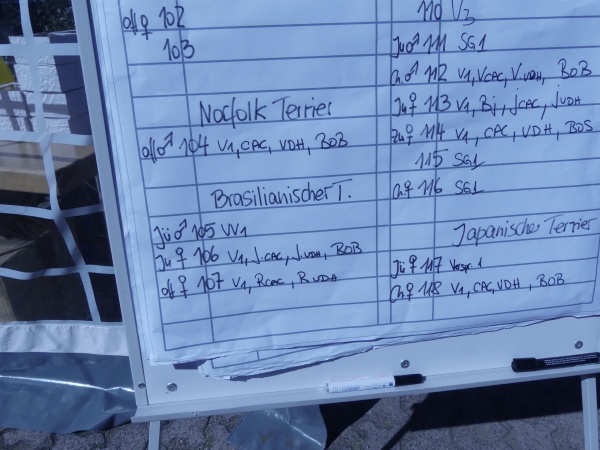 off ♀ 102
103
Norfolk Terrier
off ♂ 104 V1, CAC, VDH, BOB
Brasilianischer T.
Jü ♂ 105 VV1
Ju ♀ 106 V1, J.CAC, J.VDH, BOB
off ♀ 107 V1, RCAC, R VDH
110 V3
Jü ♂ 111 SG1
Ch ♂ 112 V1, VCAC, V.VDH, BOB
Ju ♀ 113 V1, Bj, jCAC, jVDH
♀ 114 V1, CAC, VDH, BOS
115 SG1
Ch ♀ 116 SG1
Japanische Terrier
Jü ♀ 117 1
Ch ♀ 118 V1, CAC, VDH, BOB